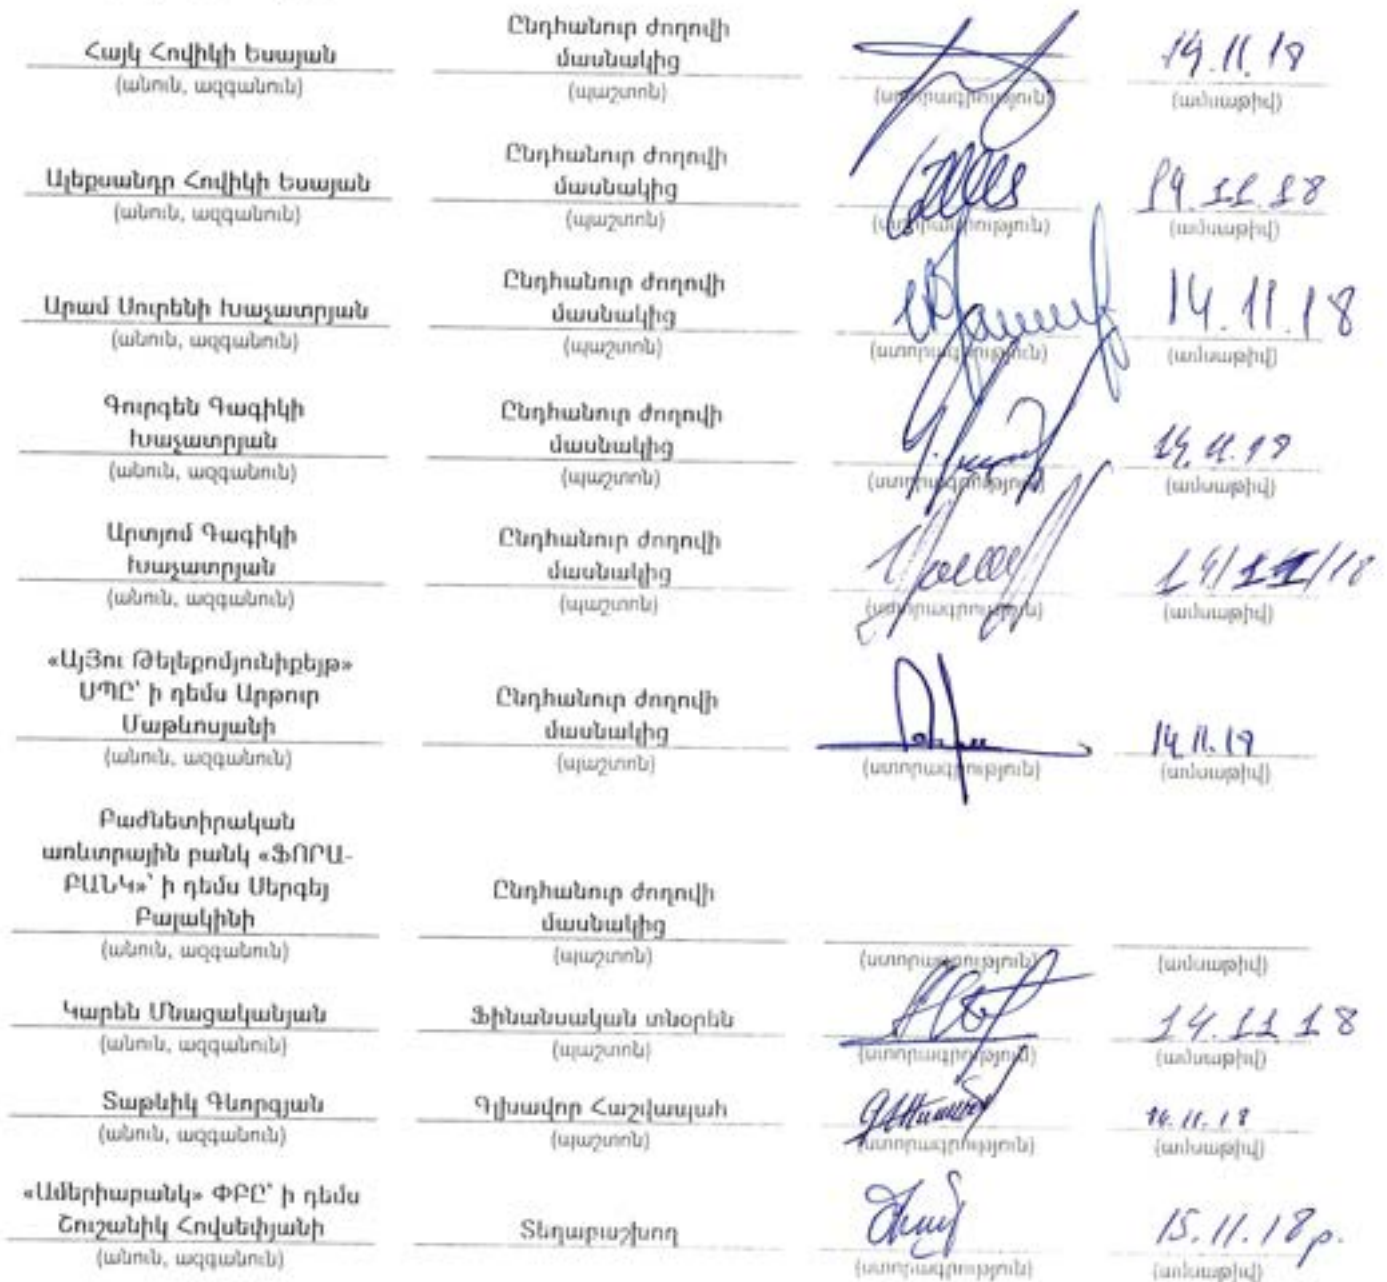 Հայկ Հովիկի Եսայան
(անուն, ազգանուն)
Ընդհանուր ժողովի
մասնակից
(պաշտոն)
(ստորագրություն)
14.11.18
(ամսաթիվ)
Ալեքսանդր Հովիկի Եսայան
(անուն, ազգանուն)
Ընդհանուր ժողովի
մասնակից
(պաշտոն)
(ստորագրություն)
14.11.18
(ամսաթիվ)
Արամ Սուրենի Խաչատրյան
(անուն, ազգանուն)
Ընդհանուր ժողովի
մասնակից
(պաշտոն)
(ստորագրություն)
14.11.18
(ամսաթիվ)
Գուրգեն Գագիկի
Խաչատրյան
(անուն, ազգանուն)
Ընդհանուր ժողովի
մասնակից
(պաշտոն)
(ստորագրություն)
14.11.18
(ամսաթիվ)
Արտյոմ Գագիկի
Խաչատրյան
(անուն, ազգանուն)
Ընդհանուր ժողովի
մասնակից
(պաշտոն)
(ստորագրություն)
14/11/18
(ամսաթիվ)
«ԱյՅու Թելեքոմյունիքեյթ»
ՍՊԸ՝ ի դեմս Արթուր
Մաթևոսյանի
(անուն, ազգանուն)
Ընդհանուր ժողովի
մասնակից
(պաշտոն)
(ստորագրություն)
14.11.18
(ամսաթիվ)
Բաժնետիրական
առևտրային բանկ «ՖՈՐԱ-
ԲԱՆԿ»՝ ի դեմս Սերգեյ
Բալակինի
(անուն, ազգանուն)
Ընդհանուր ժողովի
մասնակից
(պաշտոն)
(ստորագրություն)
(ամսաթիվ)
Կարեն Մնացականյան
(անուն, ազգանուն)
Ֆինանսական տնօրեն
(պաշտոն)
(ստորագրություն)
14.11.18
(ամսաթիվ)
Տաթևիկ Գևորգյան
(անուն, ազգանուն)
Գլխավոր Հաշվապահ
(պաշտոն)
(ստորագրություն)
14.11.18
(ամսաթիվ)
«Ամերիաբանկ» ՓԲԸ՝ ի դեմս
Շուշանիկ Հովսեփյանի
(անուն, ազգանուն)
Տեղաբաշխող
(ստորագրություն)
15.11.18թ.
(ամսաթիվ)